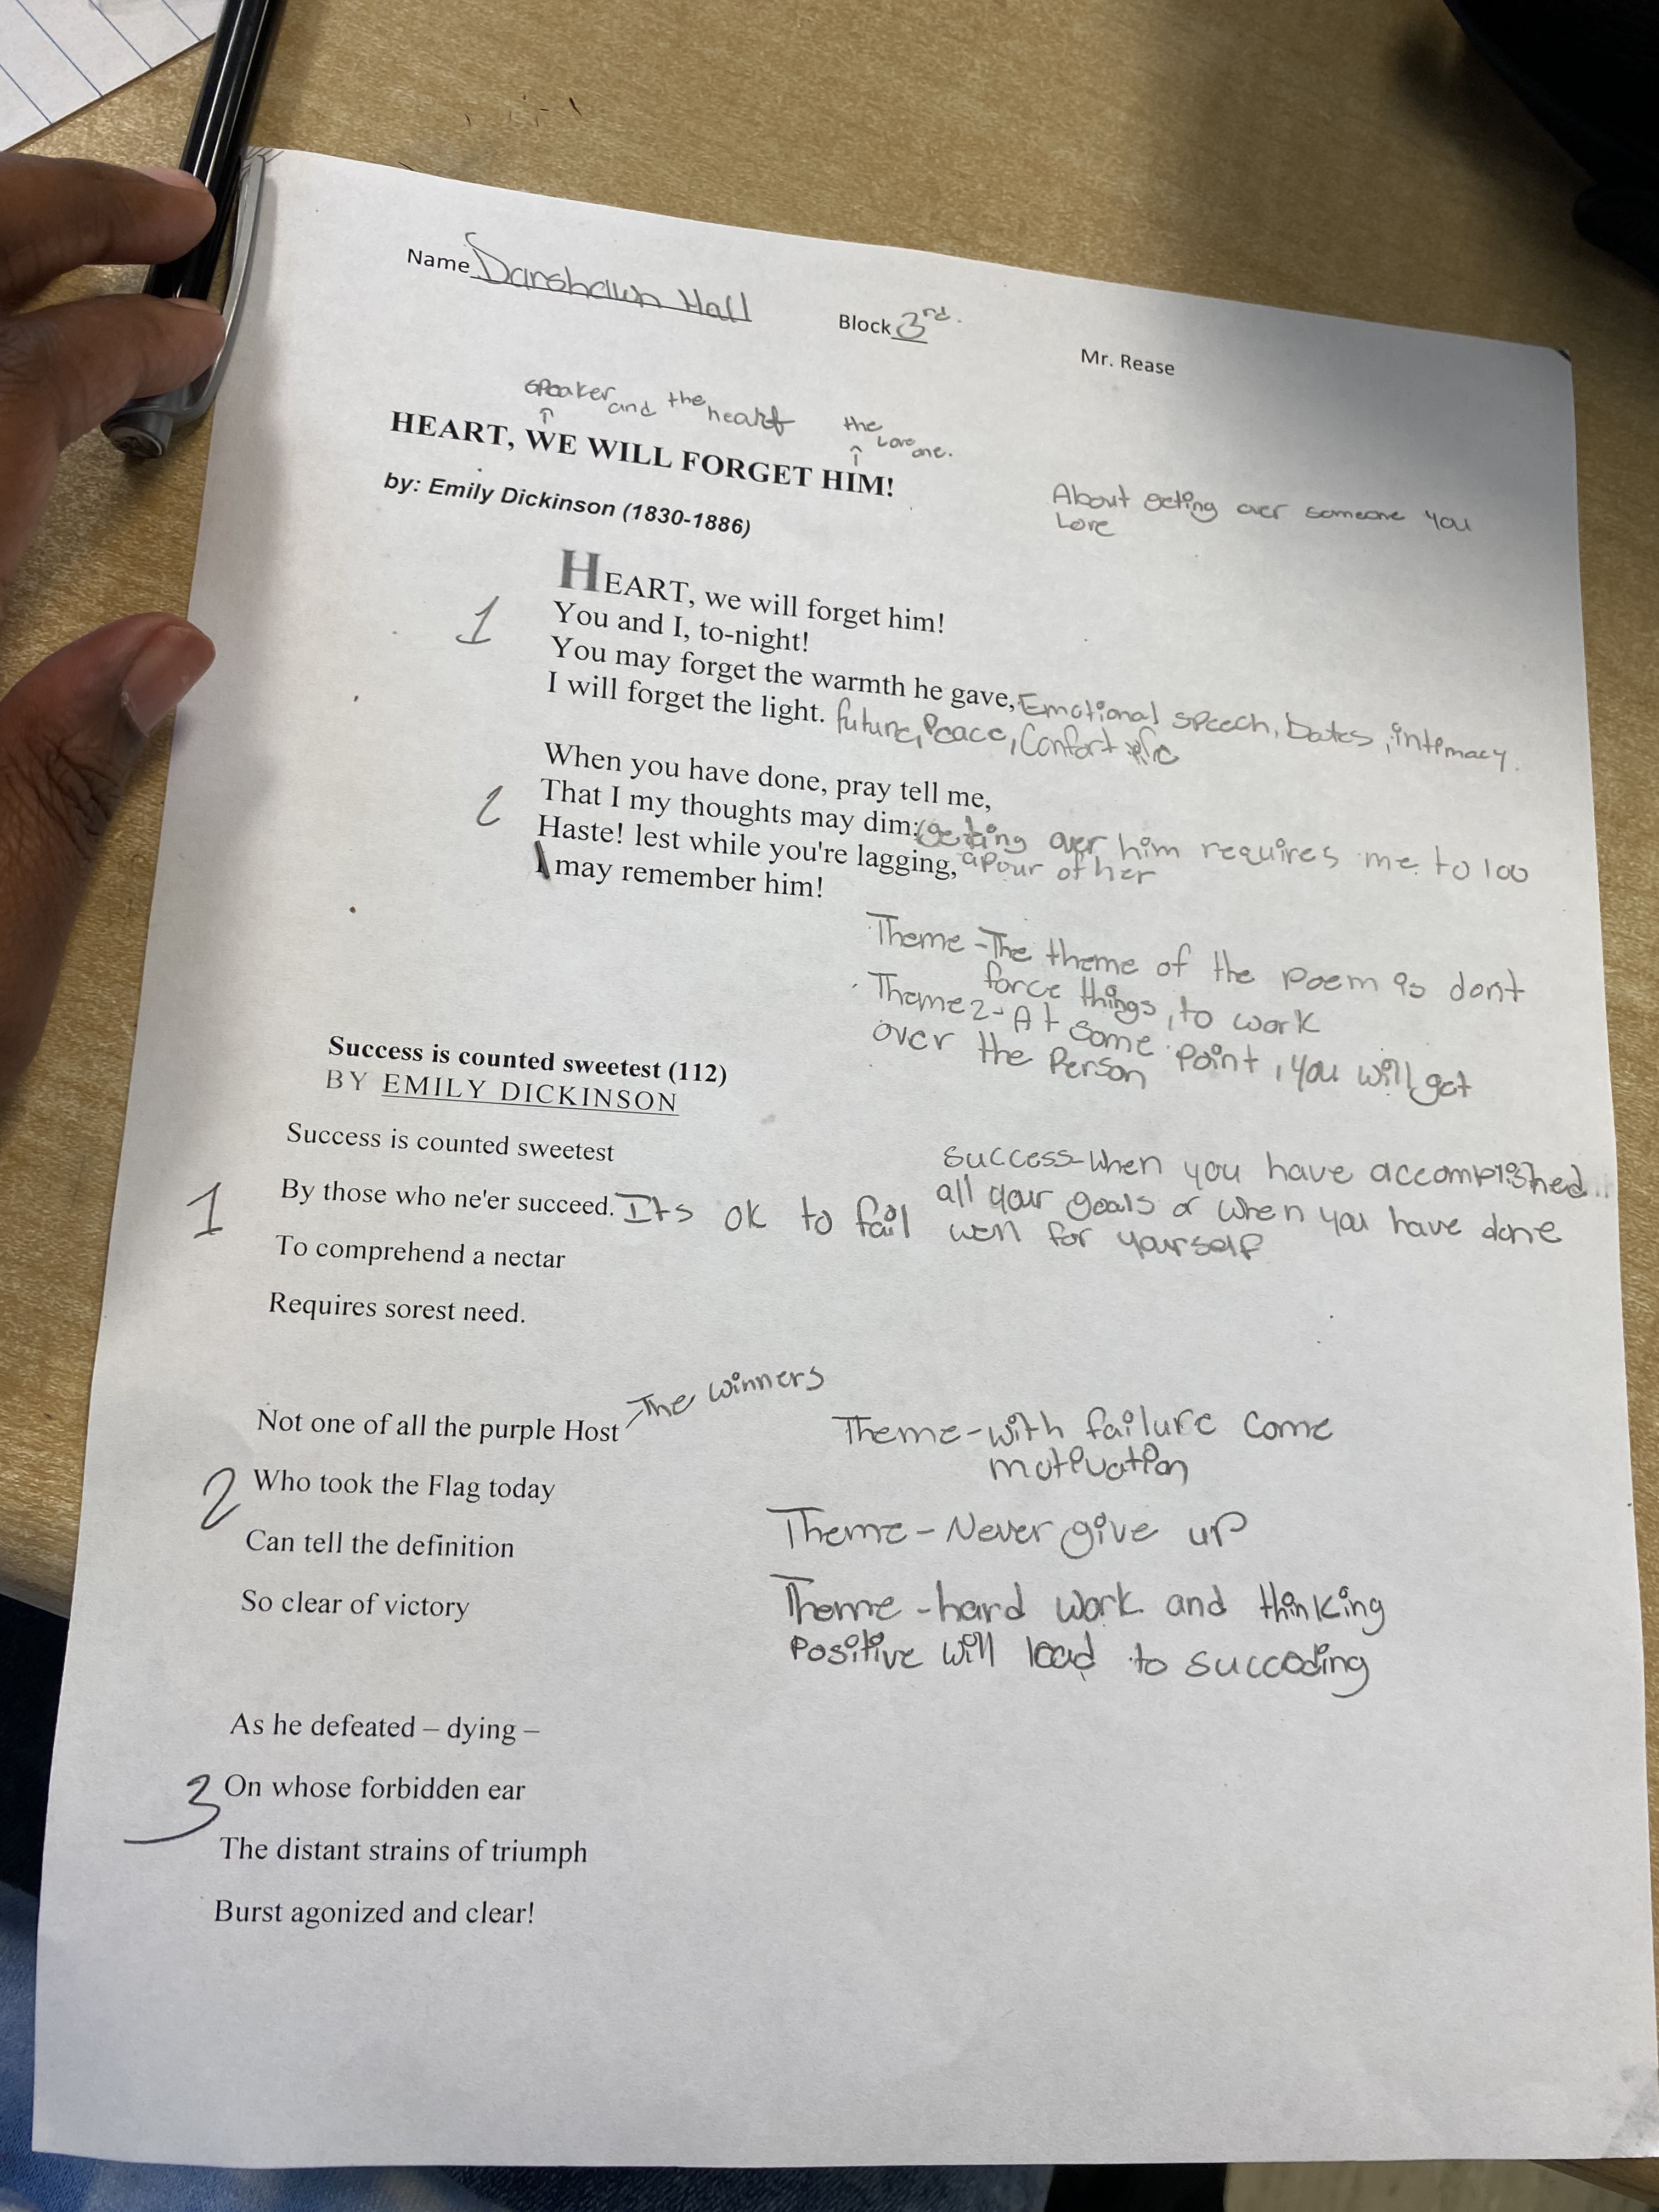 Name Darshawn Hall Block 3rd. Mr. Rease
speaker and the heart the Love one.
HEART, WE WILL FORGET HIM!
by: Emily Dickinson (1830-1886)
About geting over someone you
Love
HEART, we will forget him!
1 You and I, to-night!
You may forget the warmth he gave, Emotional speech, Dates, intimacy.
I will forget the light. future, Peace, Confort
When you have done, pray tell me,
2 That I my thoughts may dim; getting over him requires me to loo
Haste! lest while you're lagging, other
I may remember him!
Theme - The theme of the poem is dont
force things, to work
Theme 2 - At some point, you will get
over the person
Success is counted sweetest (112)
BY EMILY DICKINSON
Success is counted sweetest
success - when you have accomplished
all your goals or when you have done
well for yourself
1 By those who ne'er succeed. Its ok to fail
To comprehend a nectar
Requires sorest need.
Not one of all the purple Host The winners
2 Who took the Flag today
Can tell the definition
So clear of victory
Theme - with failure come
motivation
Theme - Never give up
Theme - hard work and thinking
Positive will lead to succeding
As he defeated – dying –
3 On whose forbidden ear
The distant strains of triumph
Burst agonized and clear!